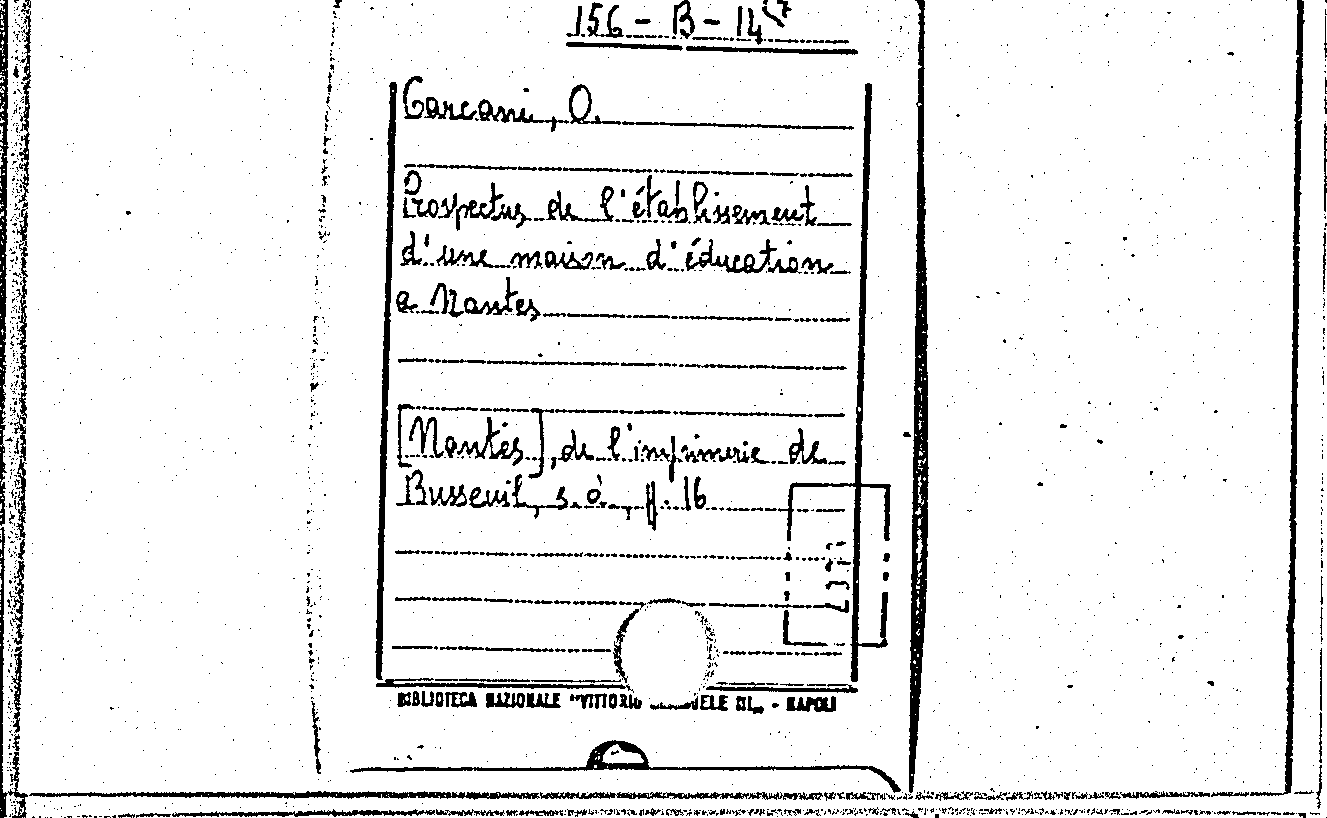 156-B-14(7
Garcani, O.
Prospectus de l'établissement
d'une maison d'éducation
a Nantes
[Nantes], de l'imprimerie de
Busseuil, s.a., p. 16
BIBLIOTECA NAZIONALE "VITTORIO EMANUELE III„ - NAPOLI